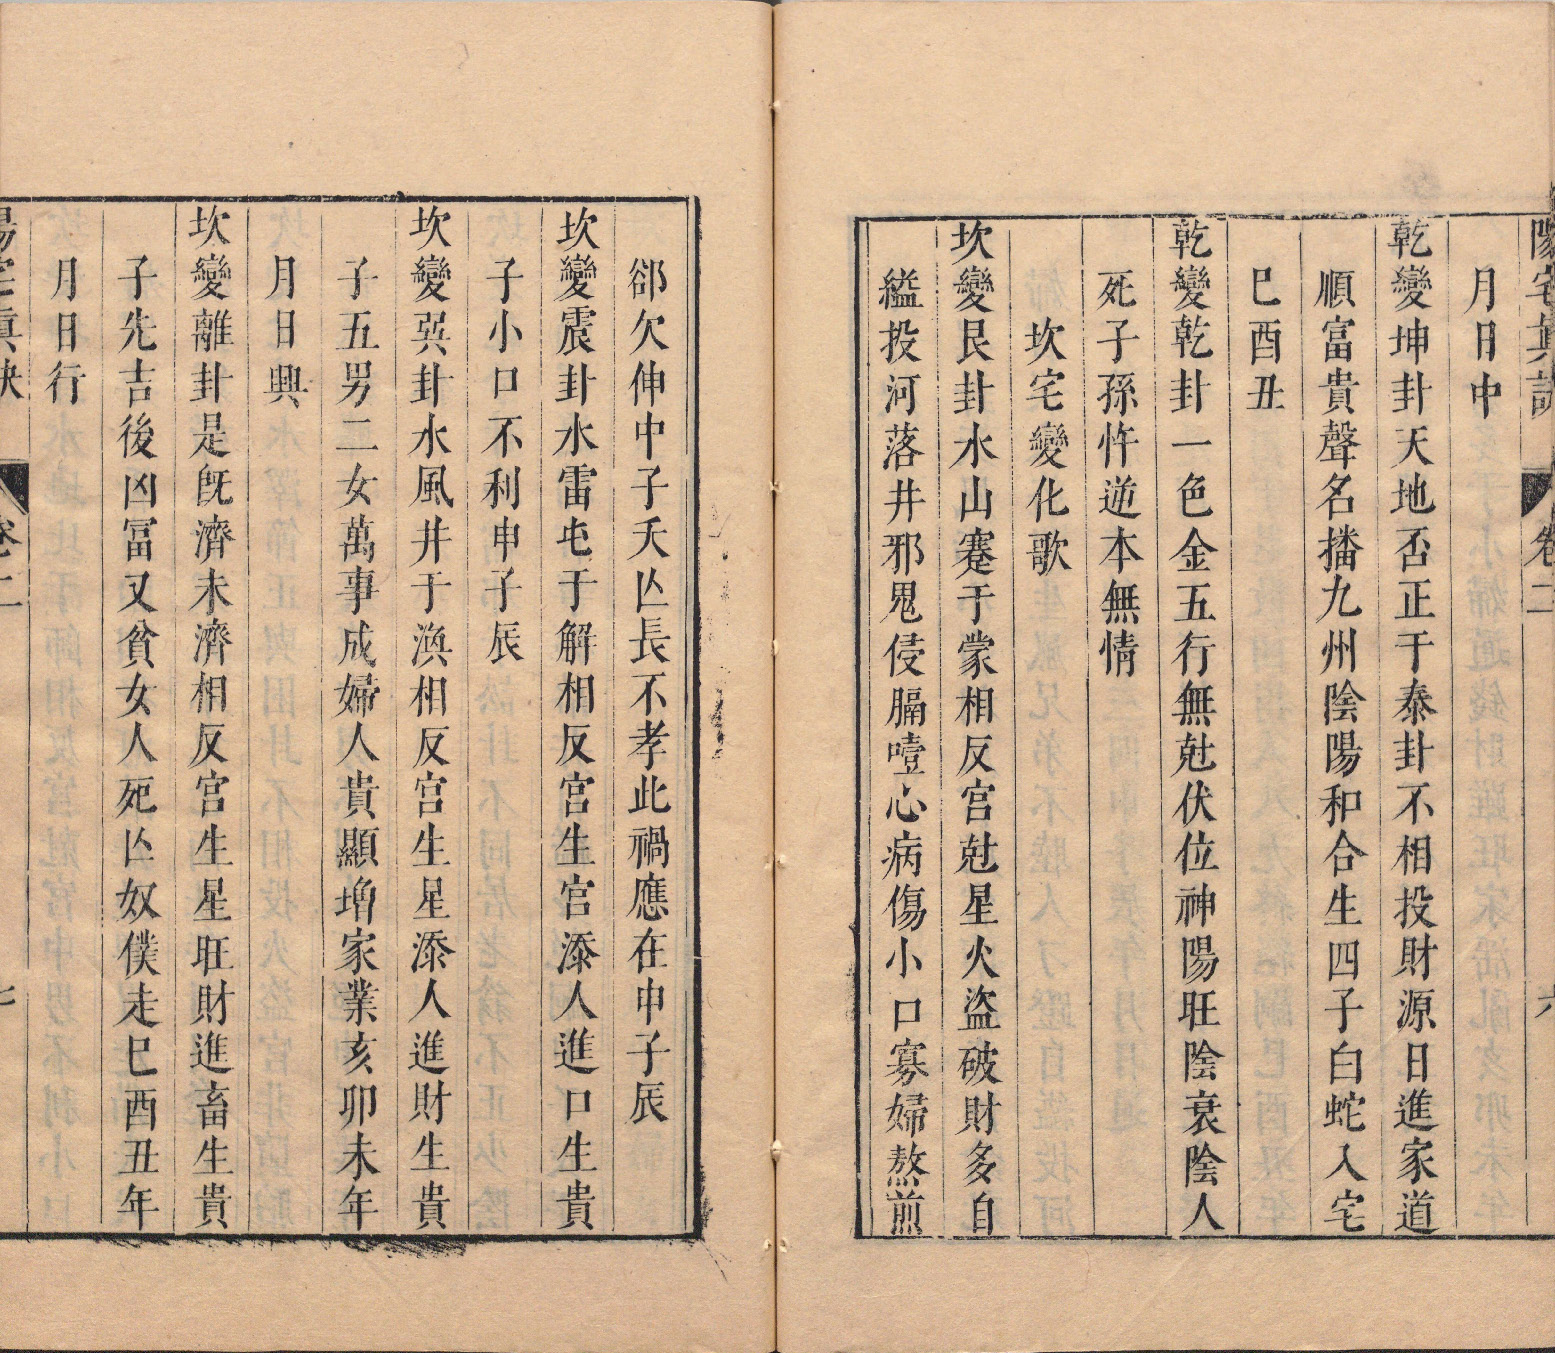 陽宅真訣 卷二 六
月日中
乾變坤卦天地否正于泰卦不相投財源日進家道
順富貴聲名播九州陰陽和合生四子白蛇入宅
巳酉丑
乾變乾卦一色金五行無尅伏位神陽旺陰衰陰人
死子孫忤逆本無情
坎宅變化歌
坎變艮卦水山蹇于蒙相反宮尅星火盜破財多自
縊投河落井邪鬼侵膈噎心病傷小口寡婦熬煎
郤欠伸中子夭亾長不孝此禍應在申子辰
坎變震卦水雷屯于解相反宮生宮添人進口生貴
子小口不利申子辰
坎變巽卦水風井于渙相反宮生星添人進財生貴
子五男二女萬事成婦人貴顯增家業亥卯未年
月日興
坎變離卦是旣濟未濟相反宮生星旺財進畜生貴
子先吉後凶冨又貧女人死亾奴僕走巳酉丑年
月日行
陽宅真訣 卷二 七